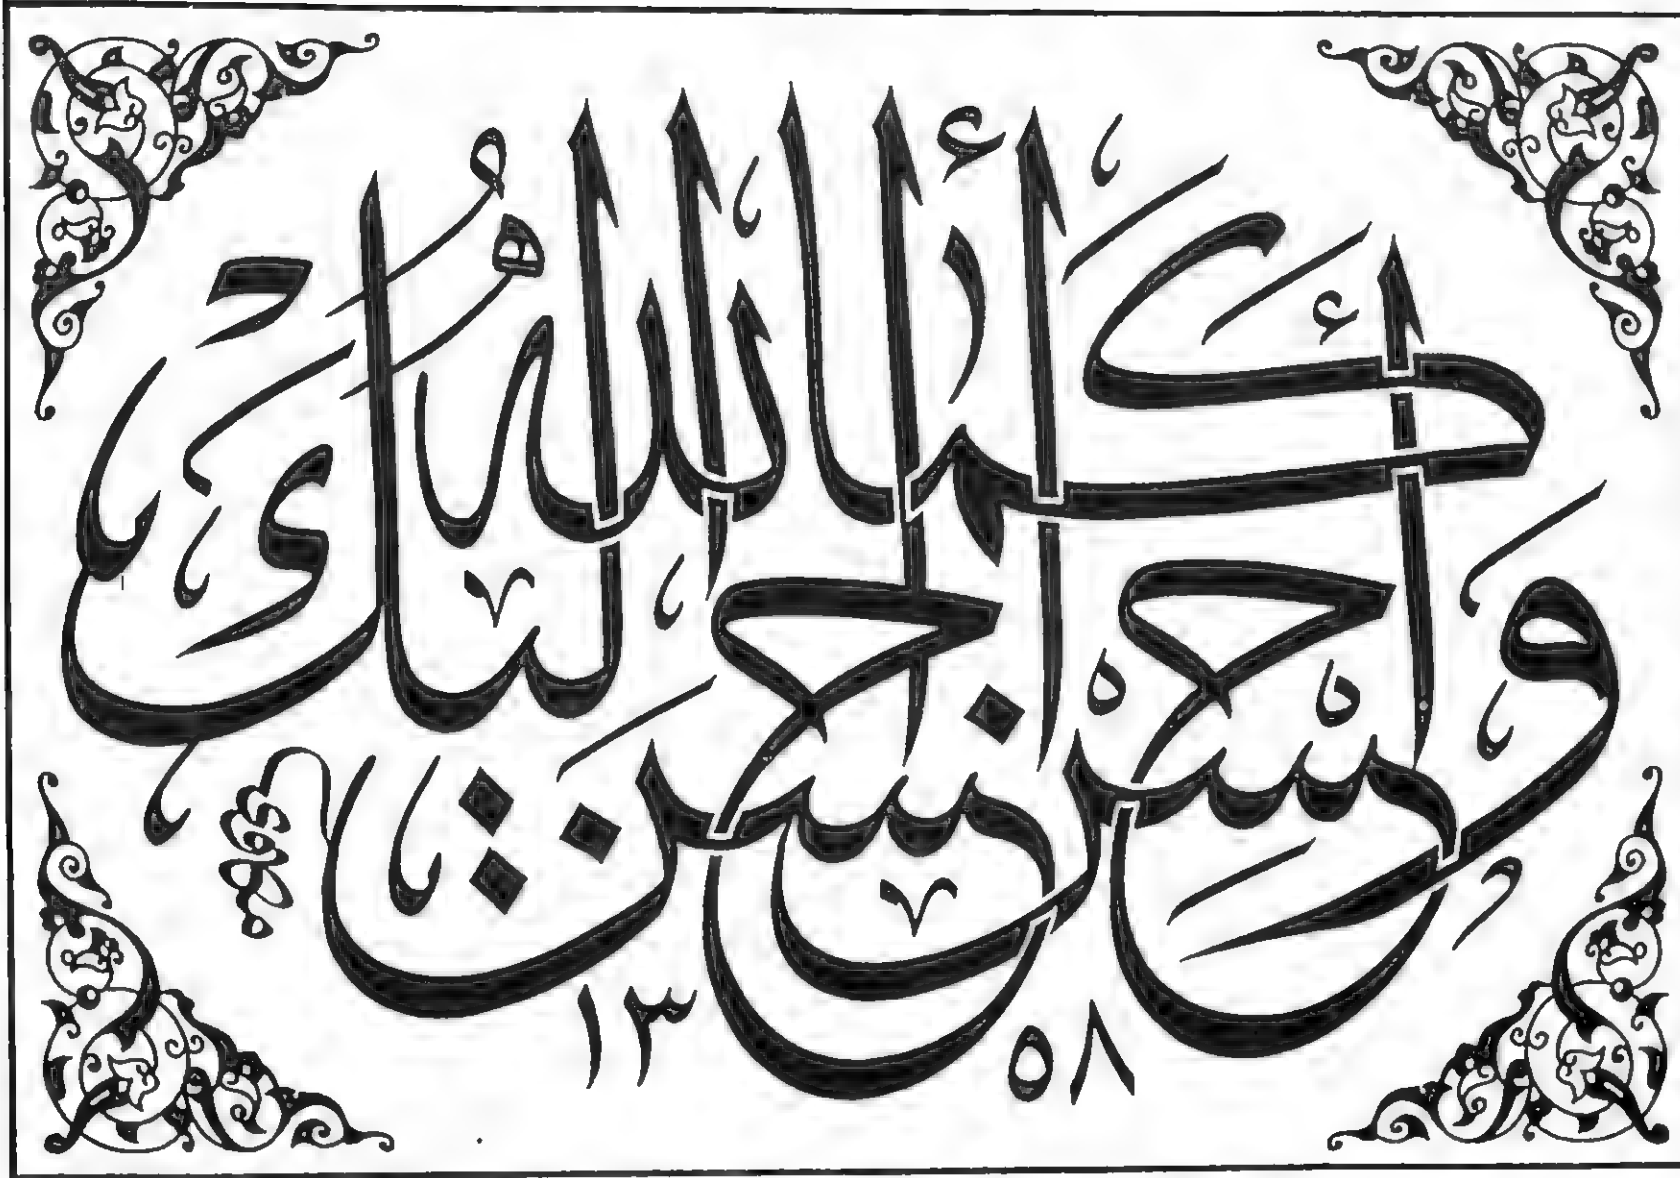 وَأَحْسِنْ كَمَا أَحْسَنَ اللَّهُ إِلَيْكَ
١٣٥٨